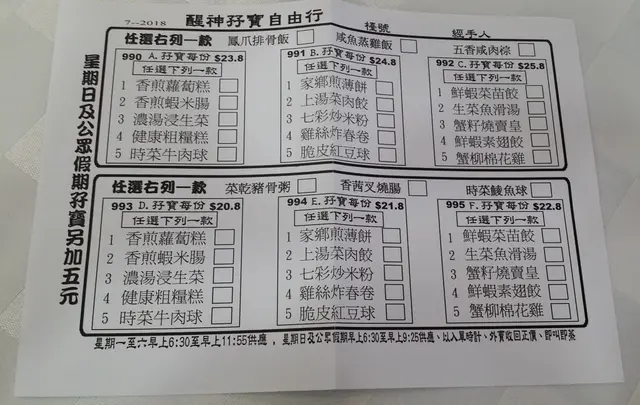 7--2018 醒神孖寶自由行 檯號 經手人
任選右列一款 鳳爪排骨飯 咸魚蒸雞飯 五香咸肉粽
990 A. 孖寶每份 $23.8
任選下列一款
1 香煎蘿蔔糕
2 香煎蝦米腸
3 濃湯浸生菜
4 健康粗糧糕
5 時菜牛肉球
991 B. 孖寶每份 $24.8
任選下列一款
1 家鄉煎薄餅
2 上湯菜肉餃
3 七彩炒米粉
4 雞絲炸春卷
5 脆皮紅豆球
992 C. 孖寶每份 $25.8
任選下列一款
1 鮮蝦菜苗餃
2 生菜魚滑湯
3 蟹籽燒賣皇
4 鮮蝦素翅餃
5 蟹柳棉花雞
任選右列一款 菜乾豬骨粥 香茜叉燒腸 時菜鯪魚球
993 D. 孖寶每份 $20.8
任選下列一款
1 香煎蘿蔔糕
2 香煎蝦米腸
3 濃湯浸生菜
4 健康粗糧糕
5 時菜牛肉球
994 E. 孖寶每份 $21.8
任選下列一款
1 家鄉煎薄餅
2 上湯菜肉餃
3 七彩炒米粉
4 雞絲炸春卷
5 脆皮紅豆球
995 F. 孖寶每份 $22.8
任選下列一款
1 鮮蝦菜苗餃
2 生菜魚滑湯
3 蟹籽燒賣皇
4 鮮蝦素翅餃
5 蟹柳棉花雞
星期日及公眾假期孖寶另加五元
星期一至六早上6:30至早上11:55供應，星期日及公眾假期早上6:30至早上9:25供應、以入單時計、外賣收回正價、即叫即蒸